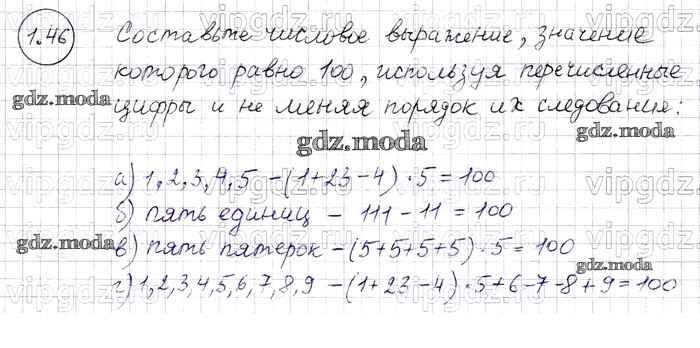 1.46 Составьте числовое выражение, значение
которого равно 100, используя перечисленные
gdz.moda цифры и не меняя порядок их следования: gdz.moda
gdz.moda
а) 1, 2, 3, 4, 5 - (1+23-4) · 5 = 100
б) пять единиц - 111 - 11 = 100
gdz.moda в) пять пятерок - (5+5+5+5) · 5 = 100 gdz.moda
г) 1, 2, 3, 4, 5, 6, 7, 8, 9 - (1+23-4) · 5+6-7-8+9 = 100